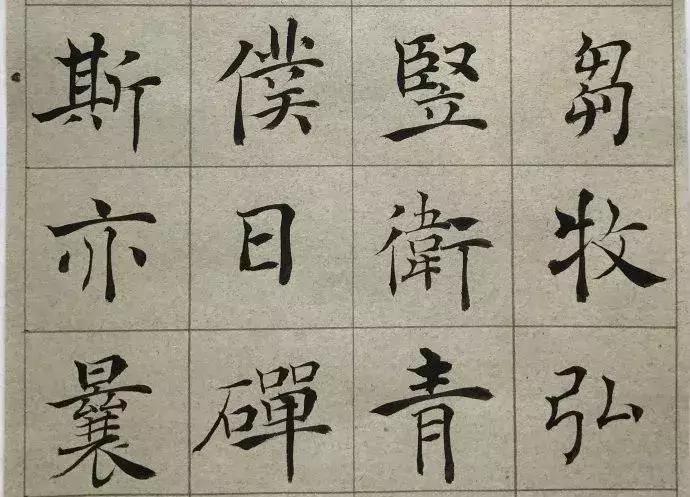 芻牧弘
豎衛青
僕日磾
斯亦曩